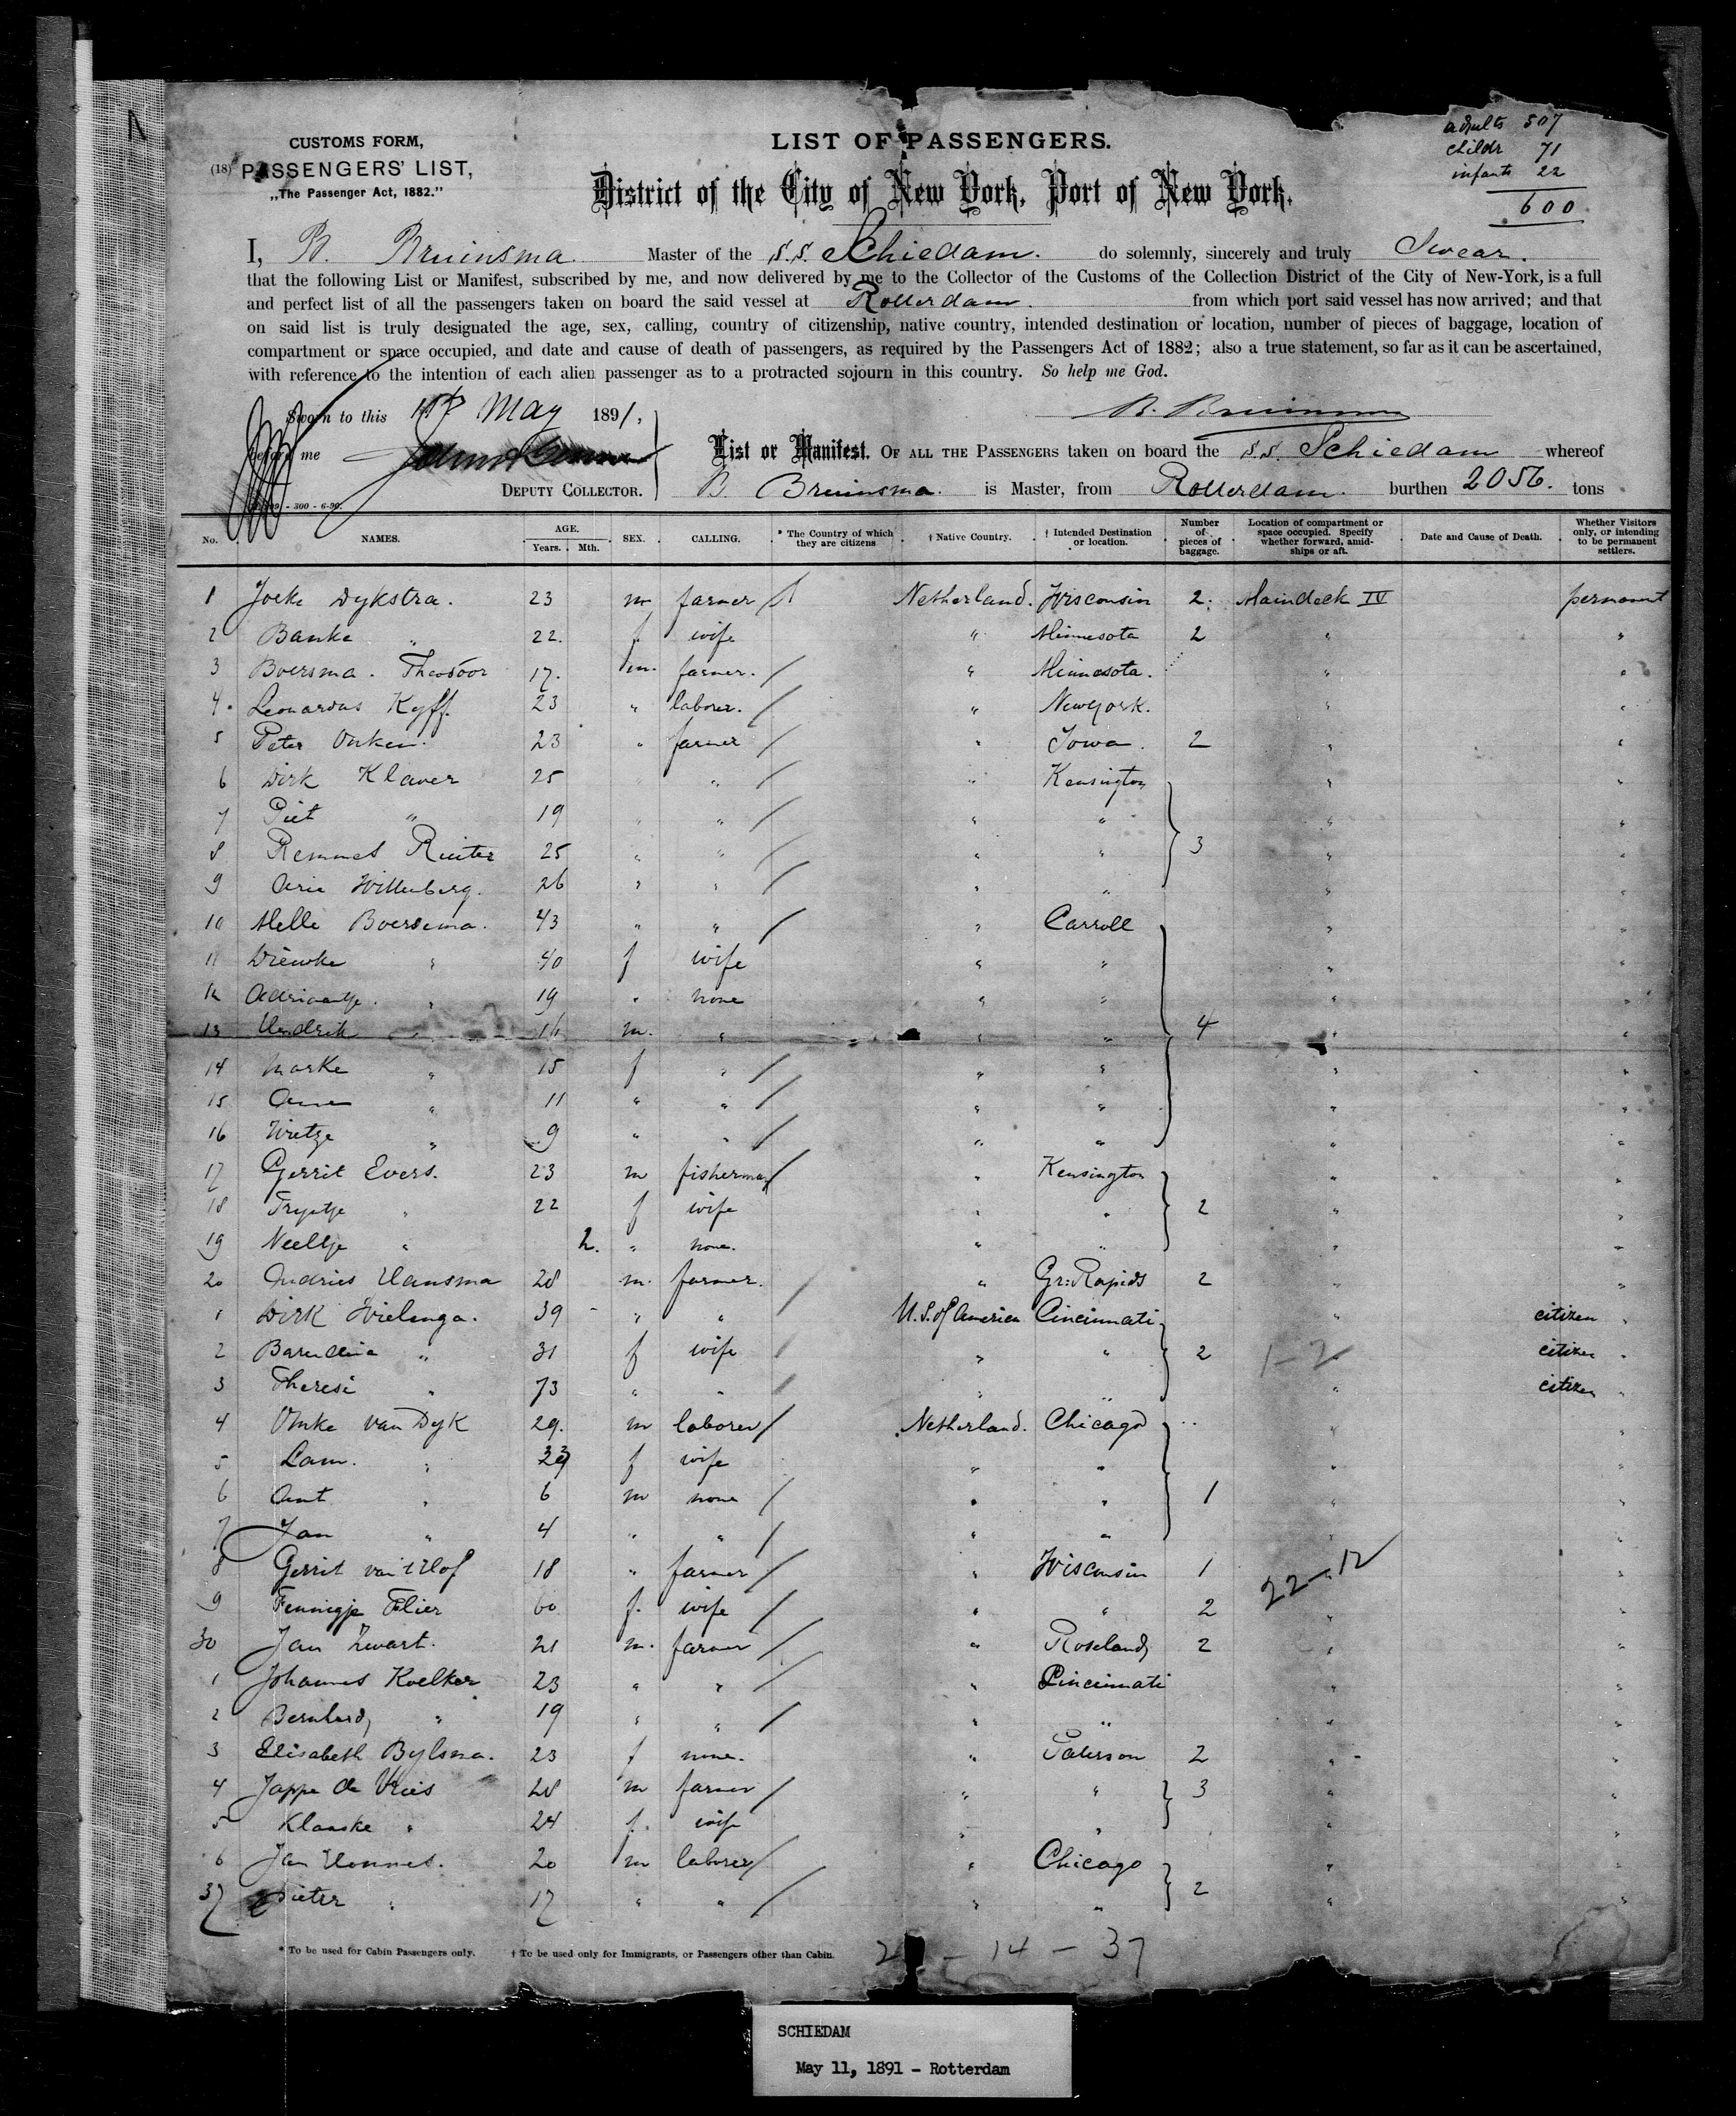 CUSTOMS FORM,
(18) PASSENGERS' LIST,
„The Passenger Act, 1882."
LIST OF PASSENGERS.
District of the City of New York, Port of New York.
adults 507
childr 71
infants 22
600
I, B. Bruinsma Master of the s.s. Schiedam. do solemnly, sincerely and truly Swear.
that the following List or Manifest, subscribed by me, and now delivered by me to the Collector of the Customs of the Collection District of the City of New-York, is a full
and perfect list of all the passengers taken on board the said vessel at Rotterdam. from which port said vessel has now arrived; and that
on said list is truly designated the age, sex, calling, country of citizenship, native country, intended destination or location, number of pieces of baggage, location of
compartment or space occupied, and date and cause of death of passengers, as required by the Passengers Act of 1882; also a true statement, so far as it can be ascertained,
with reference to the intention of each alien passenger as to a protracted sojourn in this country. So help me God.
Sworn to this May 1891,
B. Bruinsma
before me
List or Manifest. OF ALL THE PASSENGERS taken on board the s.s. Schiedam whereof
DEPUTY COLLECTOR.
B Bruinsma. is Master, from Rotterdam. burthen 2056. tons
- 300 - 6-90.
No. NAMES. AGE. Years. Mth. SEX. CALLING. * The Country of which they are citizens † Native Country. † Intended Destination or location. Number of pieces of baggage. Location of compartment or space occupied. Specify whether forward, amidships or aft. Date and Cause of Death. Whether Visitors only, or intending to be permanent settlers.
1 Joeke Dykstra. 23 m farmer / Netherland. Wisconsin 2. Maindeck IV permanent
2 Banke " 22. f wife " Minnesota 2 " "
3 Boersma. Theodoor 17. m. farmer. / " Minnesota. " "
4. Leonardus Kyff. 23 " laborer. / " New York. " "
5 Peter Onken. 23 " farmer / " Iowa. 2 " "
6 Dirk Klaver 25 " " / " Kensington " "
7 Piet " 19 " " / " " " "
8 Remmet Ruiter 25 " " / " " 3 " "
9 Arie Willenberg. 26 " " / " " " "
10 Melle Boersema. 43 " " / " Carroll " "
11 Diewke " 40 f wife " " " "
12 Adriaantje. " 19 " none " " " "
13 Hendrik " 16 m. " " " 4 " "
14 Marke " 15 f " / " " " "
15 " 11 " " / " " " "
16 Wietze " 9 " " / " " " "
17 Gerrit Evers. 23 m fisherman / " Kensington " "
18 Tryntje " 22 f wife " " 2 " "
19 Neeltje " 2. " none. " " " "
20 Andries Hansma 28 m. farmer. / " Gr: Rapids 2 " "
1 Dirk Wielenga. 39 - " " U.S. of America Cincinnati " citizen
2 Barendina " 31 f wife / " " 2 1-2 citizen
3 Theresi " 73 " " / " " " citizen
4 Onke van Dyk 29. m laborer / Netherland. Chicago " "
5 Lam. " 29 f wife " " " "
6 Ant " 6 m none / " " 1 " "
7 Jan " 4 " " / " " " "
8 Gerrit van 't Hof 18 " farmer / " Wisconsin 1 22-12 "
9 Fennigje Flier 60 f. wife / " " 2 " "
30 Jan Zwart. 21 m. farmer / " Roseland 2 " "
1 Johannes Koelker 23 " " / " Cincinnati " "
2 Bernhard " 19 " " / " " " "
3 Elisabeth Bylsma. 23 f none. " Paterson 2 " "
4 Jappe de Vries 28 m farmer / " " 3 " "
5 Klaaske " 24 f. wife " " " "
6 Jan Hommes. 20 m laborer / " Chicago " "
37 Pieter " 17 " " / " " 2 " "
* To be used for Cabin Passengers only. † To be used only for Immigrants, or Passengers other than Cabin.
- 14 - 37
SCHIEDAM
May 11, 1891 - Rotterdam